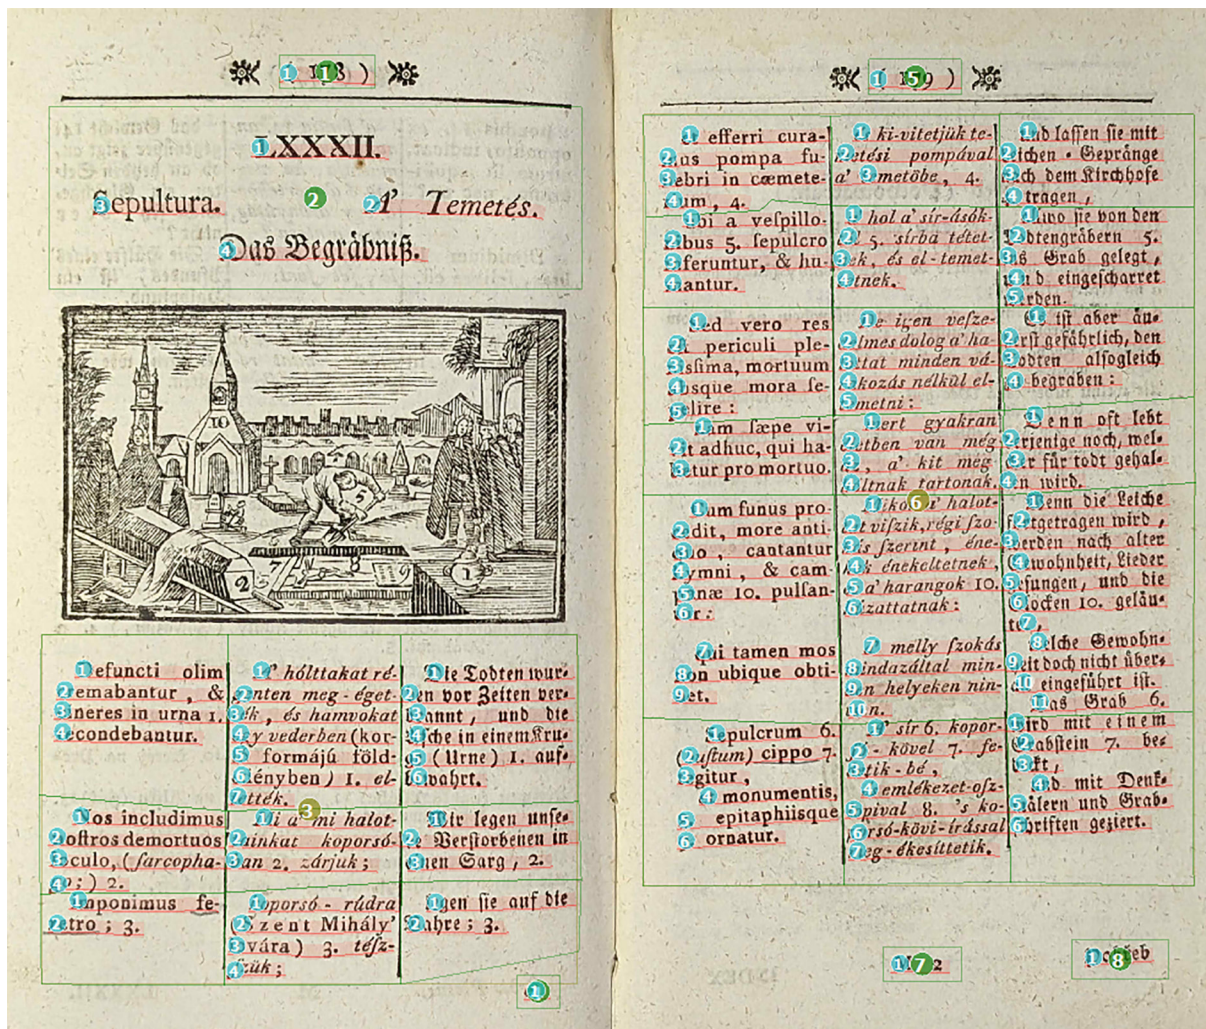 ( 158 )
LXXXII.
Sepultura. A' Temetés.
Das Begräbniß.
Defuncti olim
cremabantur, &
cineres in urna 1.
recondebantur.
A' hólttakat ré-
genten meg-éget-
ték, és hamvokat
egy vederben (kor-
só formájú föld-
edényben) 1. el-
tették.
Die Todten wur-
den vor Zeiten ver-
brannt, und die
Asche in einem Kru-
ge (Urne) 1. auf-
bewahrt.
Nos includimus
nostros demortuos
loculo, (ſarcopha-
go;) 2.
Mi a' mi halot-
tainkat koporsó-
ban 2. zárjuk;
Wir legen unse-
re Verstorbenen in
einen Sarg, 2.
Imponimus fe-
retro; 3.
koporsó-rúdra
(Szent Mihály'
lovára) 3. téſz-
ſzük;
legen sie auf die
Bahre; 3.
( 159 )
Et efferri cura-
mus pompa fu-
nebri in cœmete-
rium, 4.
és ki-vitetjük te-
metési pompával
a' temetöbe, 4.
und lassen sie mit
Leichen-Gepränge
nach dem Kirchhofe
4. tragen,
Ubi a veſpillo-
nibus 5. ſepulcro
inferuntur, & hu-
mantur.
a' hol a' sír-ásók-
tól 5. sírba tétet-
nek, és el-temet-
tetnek.
allwo sie von den
Todtengräbern 5.
ins Grab gelegt,
und eingescharret
werden.
Sed vero res
est periculi ple-
nissima, mortuum
absque mora ſe-
pelire:
De igen veſze-
delmes dolog a' ha-
lottat minden vá-
rakozás nélkül el-
temetni:
Es ist aber äu-
ßerst gefährlich, den
Todten alsogleich
zu begraben:
Nam ſæpe vi-
vit adhuc, qui ha-
betur pro mortuo.
Mert gyakran
életben van még
az, a' kit meg
hóltnak tartonak.
Denn oft lebt
derjenige noch, wel-
cher für todt gehal-
ten wird.
Cum funus pro-
dit, more anti-
quo, cantantur
hymni, & cam-
panæ 10. pulſan-
tur:
Mikor a' halot-
tat viſzik, régi ſzo-
kás ſzerint, éne-
kek énekeltetnek,
és a' harangok 10.
húzattatnak:
Wenn die Leiche
fortgetragen wird,
werden nach alter
Gewohnheit, Lieder
gesungen, und die
Glocken 10. geläu-
tet,
Qui tamen mos
non ubique obti-
net.
a' melly ſzokás
mindazáltal min-
den helyeken nin-
tsen.
welche Gewohn-
heit doch nicht über-
all eingeführt ist.
Sepulcrum 6.
(buſtum) cippo 7.
tegitur,
& monumentis,
& epitaphiisque
ornatur.
A' sír 6. kopor-
só-kövel 7. fe-
detik-bé,
és emlékezet-oſz-
lopival 8. 's ko-
porsó-kövi-írással
meg-ékesíttetik.
Das Grab 6.
wird mit einem
Grabstein 7. be-
deckt,
und mit Denk-
mälern und Grab-
schriften geziert.